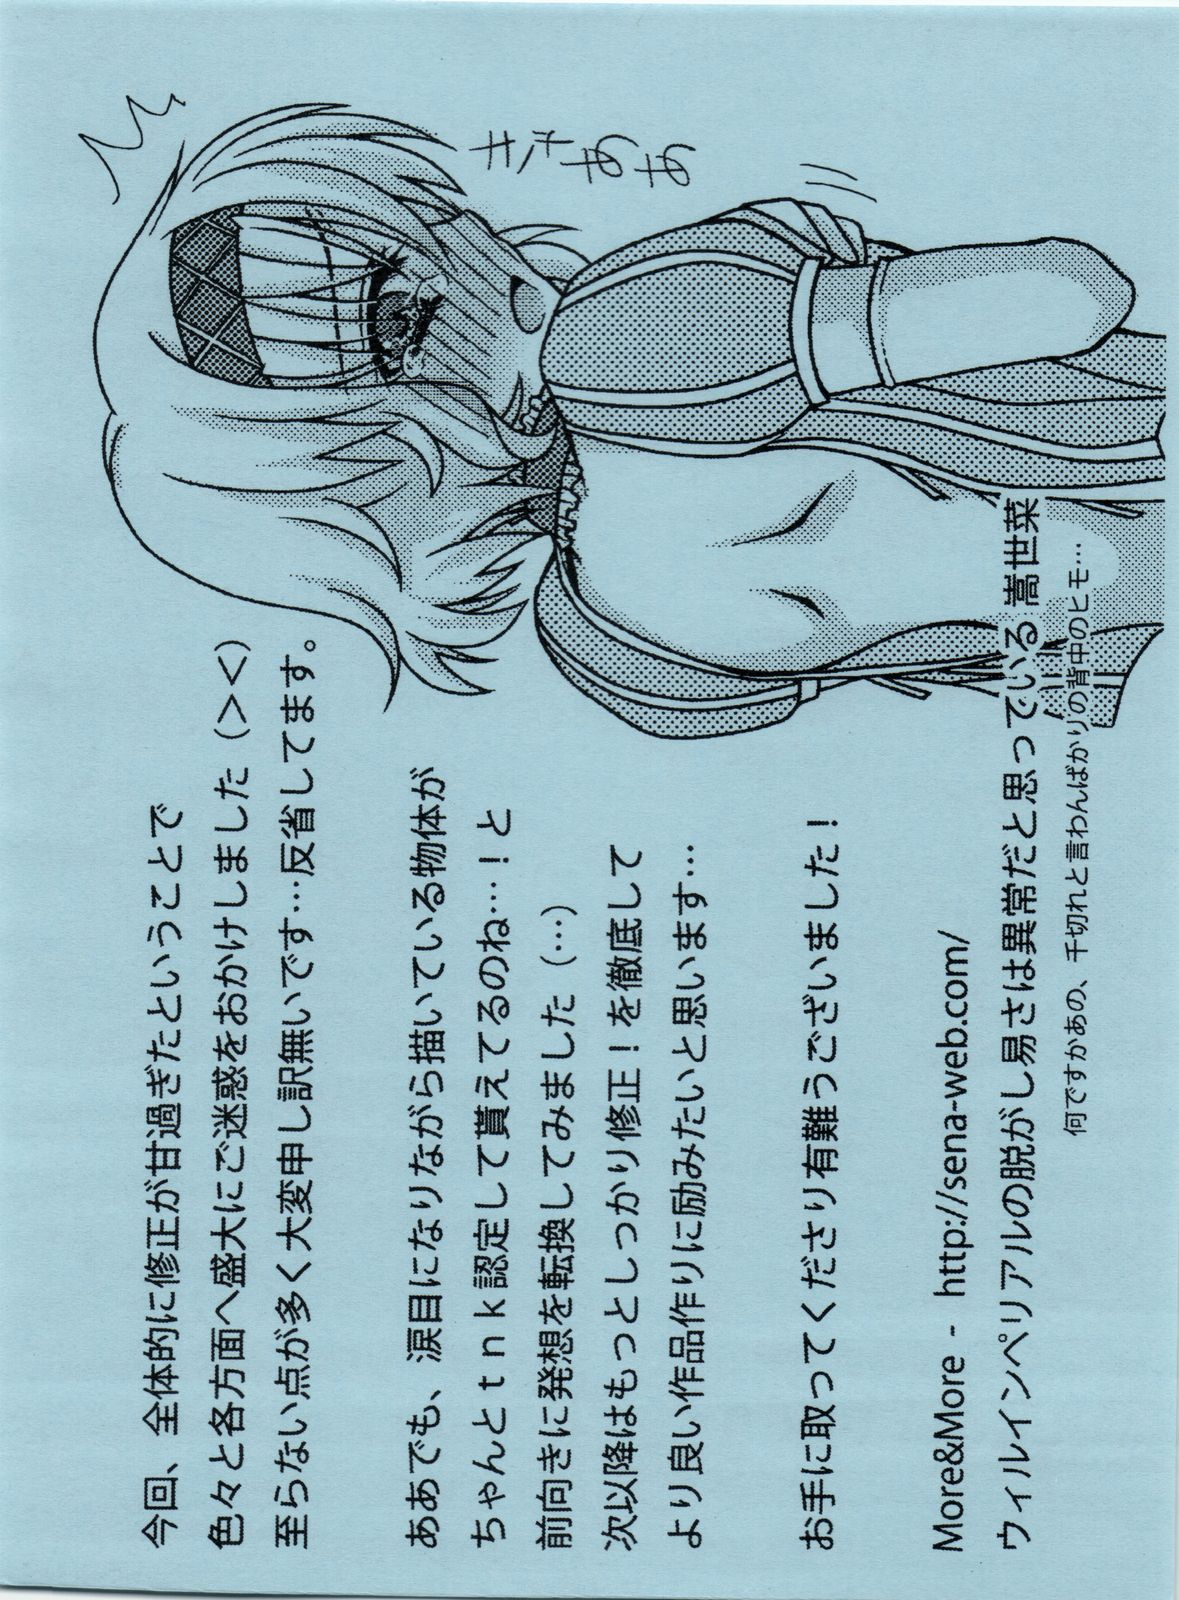 今回、全体的に修正が甘過ぎたということで
色々と各方面へ盛大にご迷惑をおかけしました（＞＜）
至らない点が多く大変申し訳無いです…反省してます。
ああでも、涙目になりながら描いている物体が
ちゃんとｔｎｋ認定して貰えてるのね…！と
前向きに発想を転換してみました（…）
次以降はもっとしっかり修正！を徹底して
より良い作品作りに励みたいと思います…
お手に取ってくださり有難うございました！
More&More - http://sena-web.com/
ウィルインペリアルの脱がし易さは異常だと思っている 嵩世菜
何ですかあの、千切れと言わんばかりの背中のヒモ…
キャああ